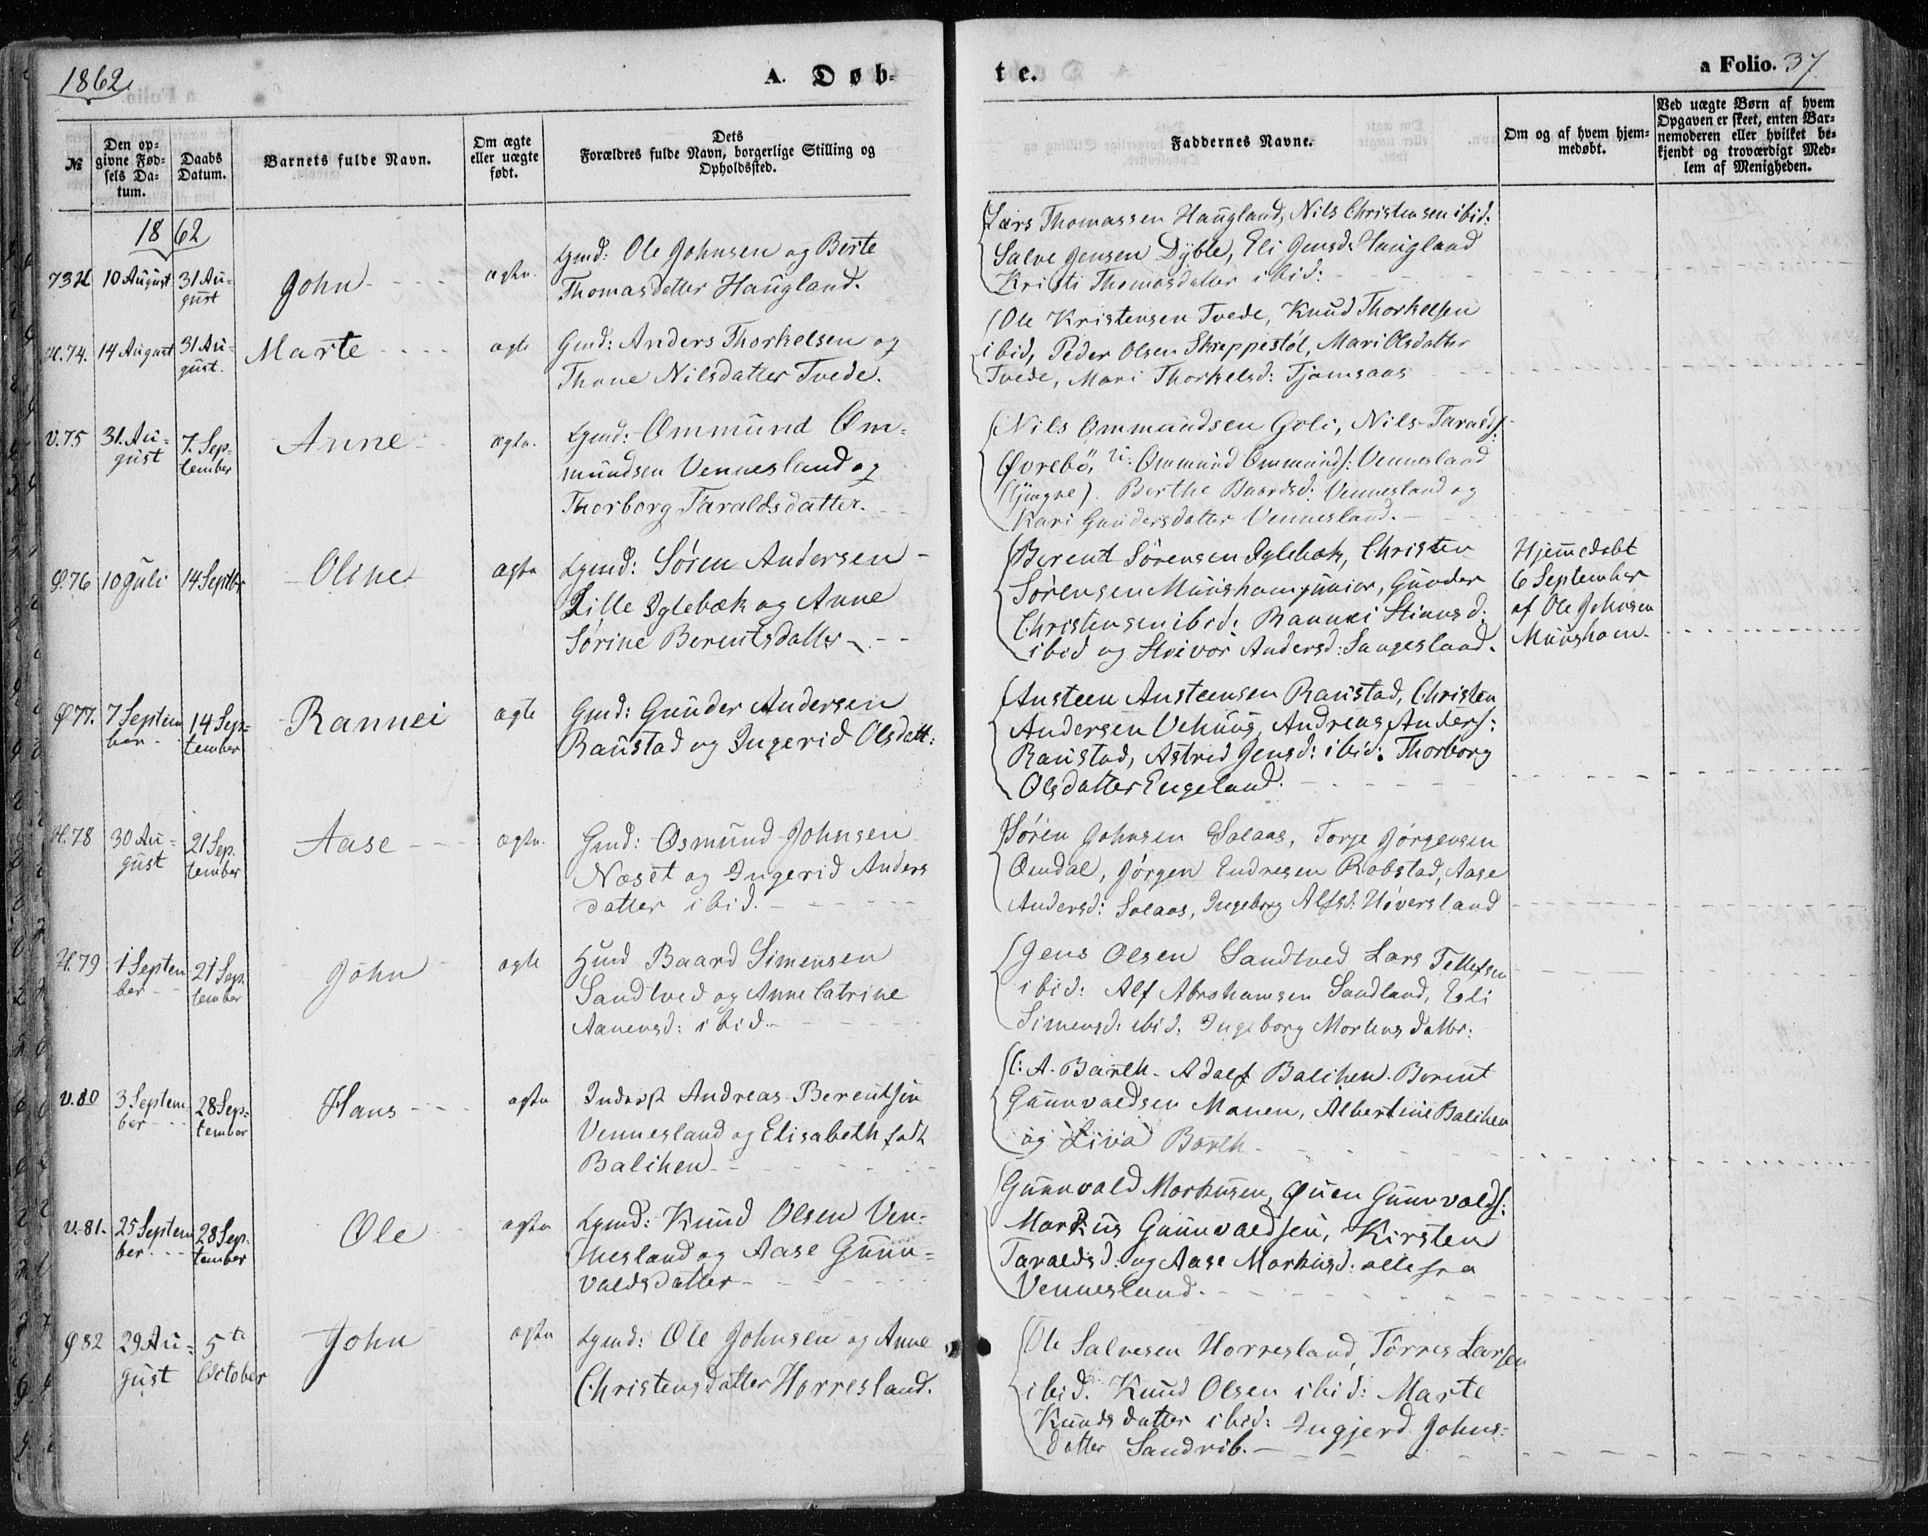 1862
A. Døb-
te.
a Folio. 37
№
Den op-
givne Fød-
sels Da-
tum.
Daabs
Datum.
Barnets fulde Navn.
Om ægte
eller uægte
født.
Dets
Forældres fulde Navn, borgerlige Stilling og
Opholdssted.
Faddernes Navne.
Om og af hvem hjem-
medøbt.
Ved uægte Børn af hvem
Opgaven er skeet, enten Bar-
nemoderen eller hvilket be-
kjendt og troværdigt Med-
lem af Menigheden.
1862
73 H 10 August 31 Au-
gust
John
ægte
Lgmd: Ole Johnsen og Berte
Thomasdatter Haugland.
Lars Thomassen Haugland, Nils Christensen ibid:
Salve Jensen Dyble, Eli Jensd: Haugland
Kristi Thomasdatter ibid:
H.74. 14 August 31 Au-
gust.
Marte
ægte
Gmd: Anders Thorkelsen og
Thone Nilsdatter Tvede.
Ole Kristensen Tvede, Knud Thorkelsen
ibid, Peder Olsen Skreppestøl, Mari Olsdatter
Tvede, Mari Thorkelsd: Tjomsaas
V.75 31. Au-
gust
7. Sep-
tember
Anne
ægte
Lgmd: Ommund Om-
mundsen Vennesland og
Thorborg Taraldsdatter.
Nils Ommundsen Goli, Nils Taralds:
Øvrebö, Ommund Ommunds: Vennesland
(yngre). Berthe Baardsd: Vennesland og
Kari Gundersdatter Vennesland.
Ø.76 10 Juli 14 Septbr
Oline
ægte
Lgmd: Søren Andersen
Lille Iglebæk og Anne
Sørine Berentsdatter
Berent Sørensen Iglebæk, Christen
Sørensen Muusham junior, Gunder
Christensen ibid: Rannei Stiansd:
ibid og Sivor Andersd: Saugesland.
Hjemedøbt
6 September
af Ole Johnsen
Muusham
Ø77. 7 Septem
ber
14 Sep-
tember
Rannei
ægte
Gmd: Gunder Andersen
Raustad og Ingerid Olsdatt:
Austeen Austeensen Raustad, Christen
Andersen Vehuus, Andreas Anders:
Raustad, Astrid Jensd: ibid: Thorborg
Olsdatter Engeland.
H.78 30 Au-
gust
21 Sep.
tember
Aase
ægte
Gmd: Osmund Johnsen
Næset og Ingerid Anders
datter ibid.
Søren Johnsen Solaas, Torje Jörgensen
Omdal, Jörgen Endresen Robstad, Aase
Andersd: Solaas, Ingeborg Alfsd: Höversland
H.79 1 Septem
ber
21 Sep.
tember
John
ægte
Huusmd Baard Simensen
Sandtved og Anne Catrine
Aanensd: ibid.
Jens Olsen Sandtved Lars Tellefsen
ibid: Alf Abrahamsen Sandland, Eli
Simensd: ibid: Ingeborg Mortensdatter.
V.80 3 Septem
ber
28 Sep-
tember
Hans
ægte
Inderst Andreas Berentsen
Vennesland og Elisabeth født
Balchen
C: A. Barth. Adolf Balchen. Berent
Gunnvaldsen Monen, Albertine Balchen
og Liva Barth
V.81. 25 Septem
ber
28 Sep.
tember
Ole
ægte
Lgmd: Knud Olsen Ven-
nesland og Aase Gunn-
valdsdatter
Gunnvald Markusen, Ouen Gunnvalds:
Markus Gunnvaldsen, Kirsten
Taraldsd: og Aase Markusd: alle fra
Vennesland.
Ø82 29 Au-
gust
5te
October
John
ægte
Lgmd: Ole Johnsen og Anne
Christensdatter Horresland.
Ole Salvesen Horresland, Törres Larsen
ibid. Knud Olsen ibid: Marte
Knudsdatter ibid: Ingjerd Johns-
datter Sandrib.